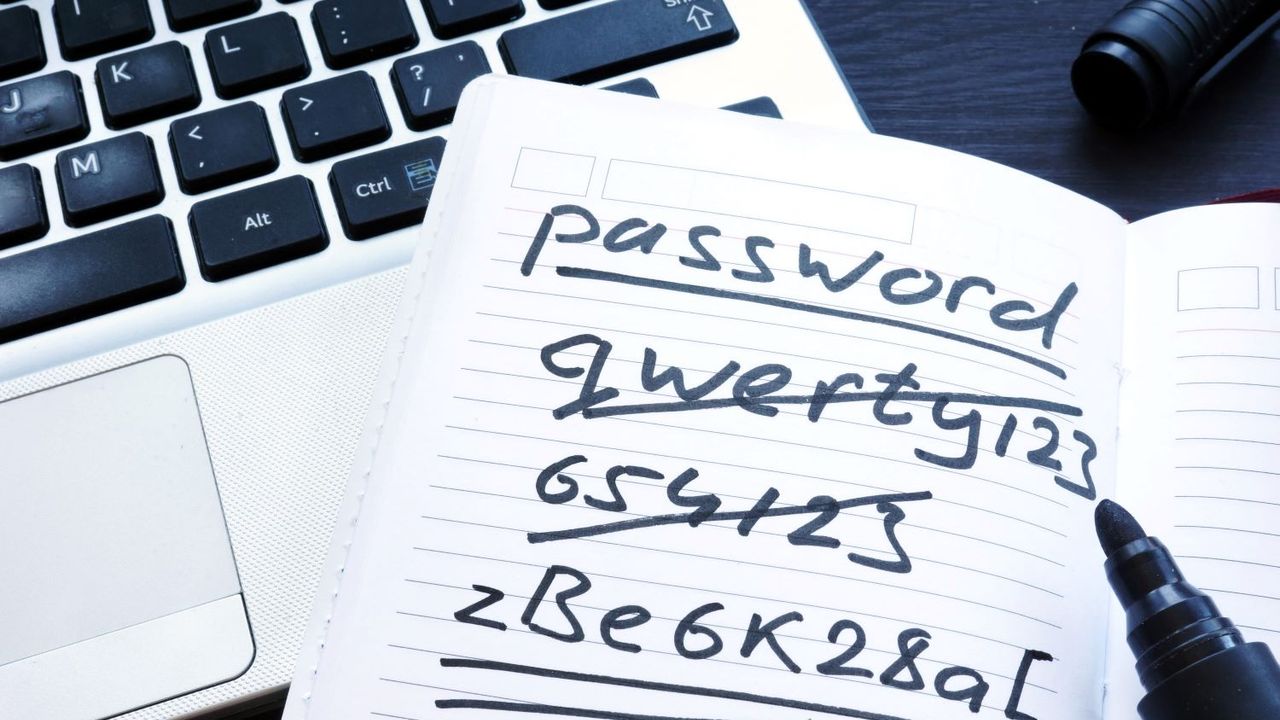 L
K
J
M
Shift
: ;
? ' /
> .
< ,
Ctrl
Alt
password
qwerty123
654123
zBe6K28a[